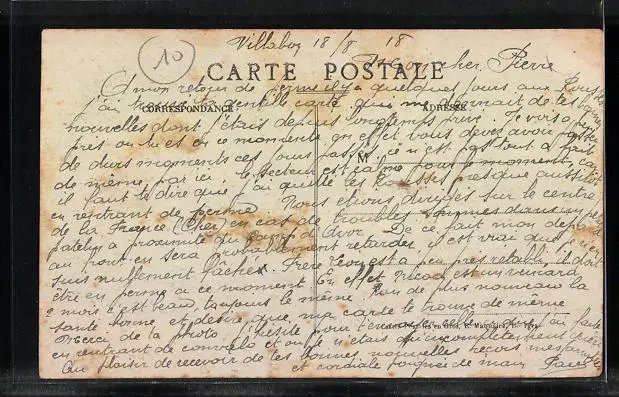 10
Villabon 18/8 18
Mon cher Pierre
CARTE POSTALE
A mon retour de perme il y a quelques jours aux Rousses
j'ai trouvé ta gentille carte qui me donnait de tes bonnes
CORRESPONDANCE
ADRESSE
nouvelles dont j'étais depuis longtemps privé. Je vois à peu
près où tu es en ce moment. En effet vous devez avoir passé
de durs moments ces jours passés, ce n'est pas tout à fait
M
de même par ici, le secteur est calme pour le moment, car
il faut te dire que j'ai quitté les Rousses presque aussitôt
en rentrant de perme. Nous étions dirigés sur le centre
de la France (Cher) en cas de troubles sommes dans un pe
à proximité qui d'Avor. De ce fait mon départ
au front en sera probablement retardé, il est vrai que je n'en
suis nullement fâché. Frère Léon est à peu près rétabli, il doit
être en perme à ce moment. En effet est un veinard
2 mois c'est beau, toujours le même. Rien de plus nouveau la
santé bonne et désire que ma carte te trouve de même
Merci de la photo j'hésite pour t'en
en rentrant de convalo et où je n'étais qu'incomplètement
Au plaisir de recevoir de tes bonnes nouvelles reçois mes amitiés
et cordiale poignée de main